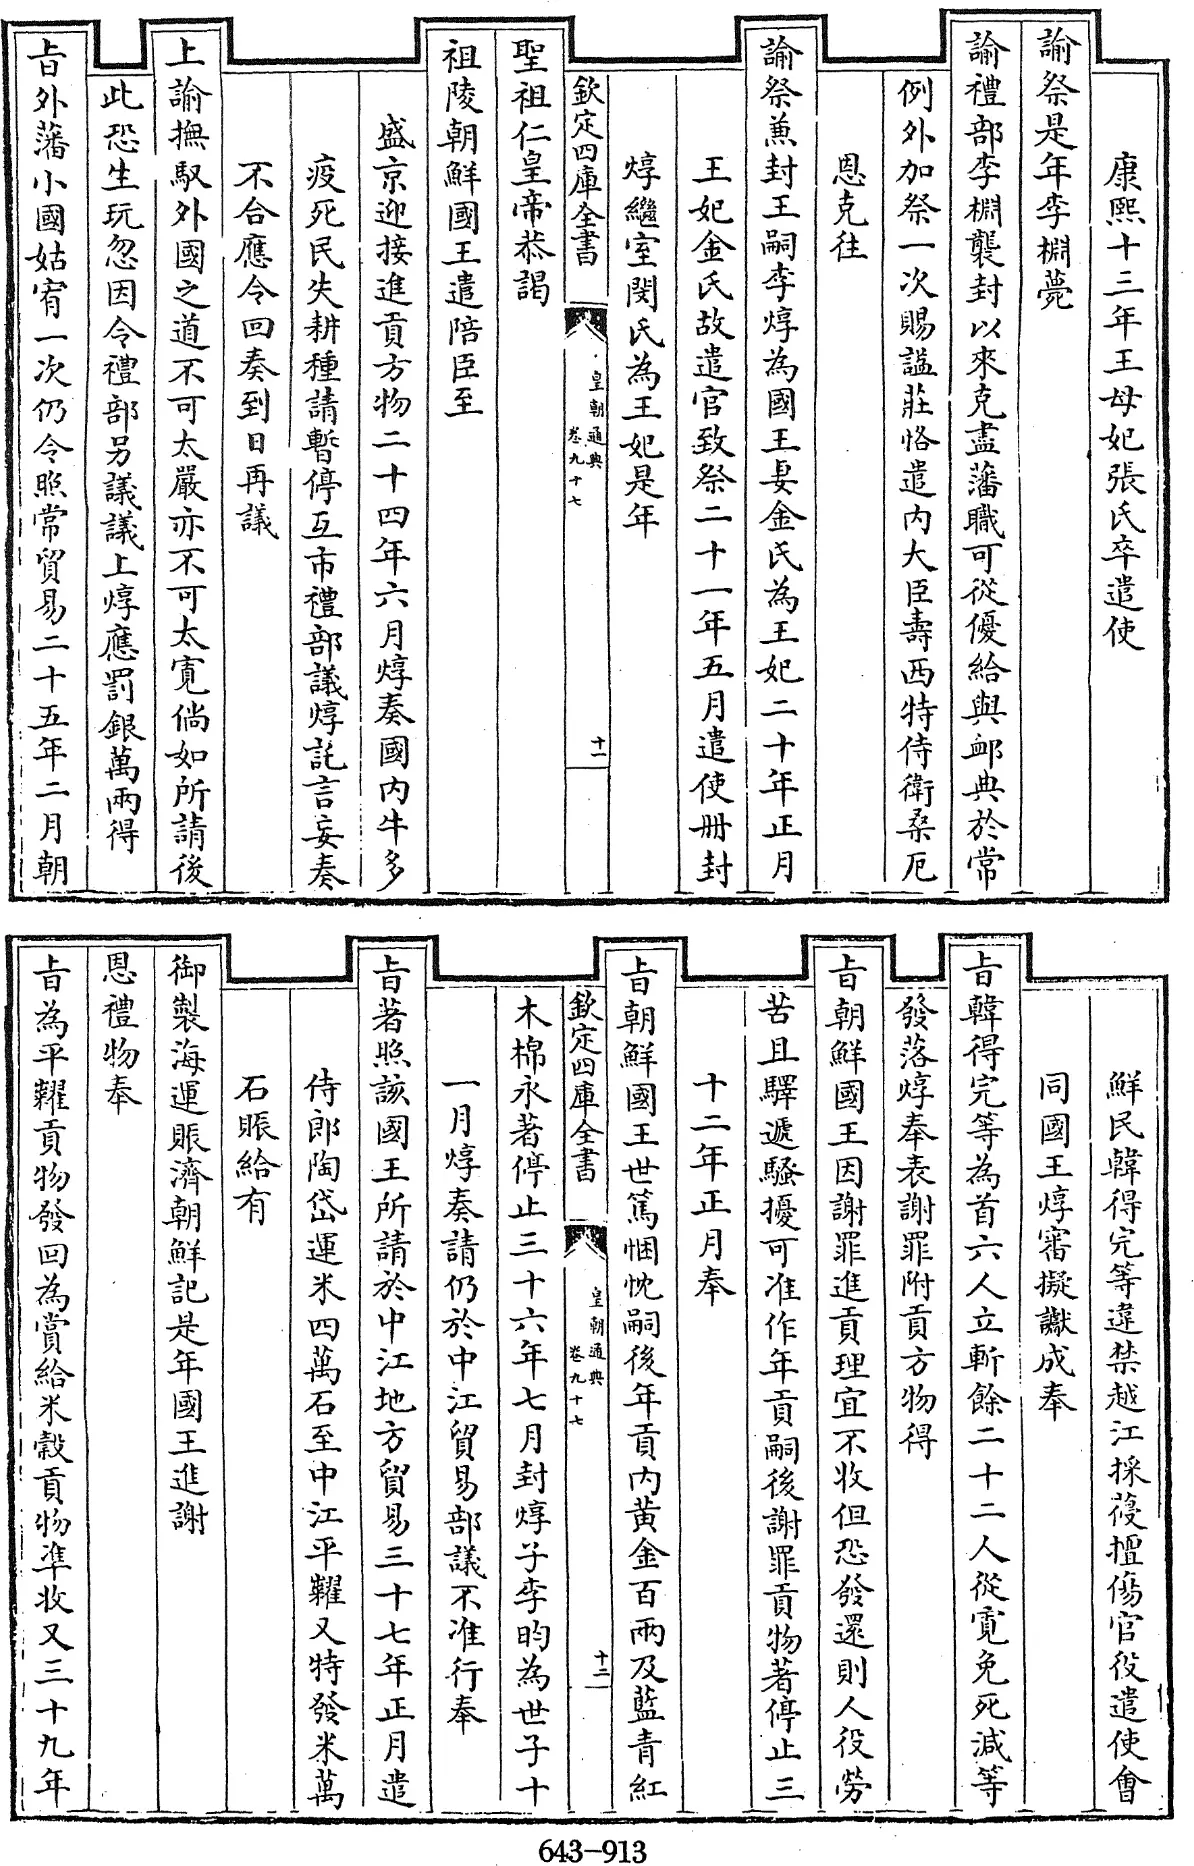 康熙十三年王母妃張氏卒遣使
諭祭是年李棩薨
諭禮部李棩襲封以來克盡藩職可從優給與䘏典於常
例外加祭一次賜諡莊恪遣内大臣壽西特侍衛桑厄
恩克往
諭祭兼封王嗣李焞為國王妻金氏為王妃二十年正月
王妃金氏故遣官致祭二十一年五月遣使冊封
焞繼室閔氏為王妃是年
欽定四庫全書
皇朝通典
卷九十七
十一
聖祖仁皇帝恭謁
祖陵朝鮮國王遣陪臣至
盛京迎接進貢方物二十四年六月焞奏國内牛多
疫死民失耕種請暫停互市禮部議焞託言妄奏
不合應令回奏到日再議
上諭撫馭外國之道不可太嚴亦不可太寛倘如所請後
此恐生玩忽因令禮部另議議上焞應罰銀萬兩得
㫖外藩小國姑宥一次仍令照常貿易二十五年二月朝
鮮民韓得完等違禁越江採葠擅傷官役遣使會
同國王焞審擬讞成奉
㫖韓得完等為首六人立斬餘二十二人從寛免死減等
發落焞奉表謝罪附貢方物得
㫖朝鮮國王因謝罪進貢理宜不收但恐發還則人役勞
苦且驛遞騷擾可准作年貢嗣後謝罪貢物著停止三
十二年正月奉
㫖朝鮮國王世篤悃忱嗣後年貢内黄金百兩及藍青紅
欽定四庫全書
皇朝通典
卷九十七
十二
木棉永著停止三十六年七月封焞子李昀為世子十
一月焞奏請仍於中江貿易部議不准行奉
㫖著照該國王所請於中江地方貿易三十七年正月遣
侍郎陶岱運米四萬石至中江平糶又特發米萬
石賑給有
御製海運賑濟朝鮮記是年國王進謝
恩禮物奉
㫖為平糶貢物發回為賞給米榖貢物準收又三十九年
643-913